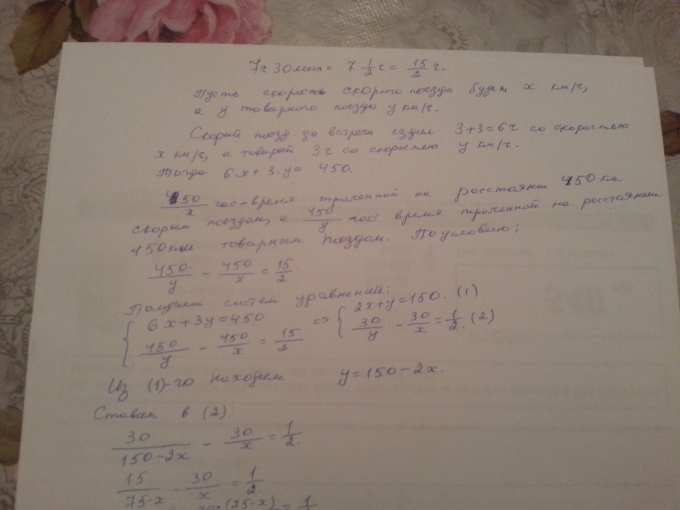 7ч 30мин = 7 1/2 ч = 15/2 ч.
Пусть скорость скорого поезда будет x км/ч,
а у товарного поезда y км/ч.
Скорый поезд до встречи ездил 3+3=6ч со скоростью
x км/ч, а товарный 3ч со скоростью y км/ч.
Тогда 6x + 3·y = 450.
450/x час-время траченной на расстояния 450 км
скорым поездом, а 450/y час время траченной на расстояния
450 км товарным поездом. По условию:
450/y - 450/x = 15/2
Получаем систем уравнений:
{ 6x+3y=450 => { 2x+y=150. (1)
450/y - 450/x = 15/2 30/y - 30/x = 1/2. (2)
Из (1)-го находим y=150-2x.
Ставим в (2)
30/150-2x - 30/x = 1/2.
15/75-x - 30/x = 1/2